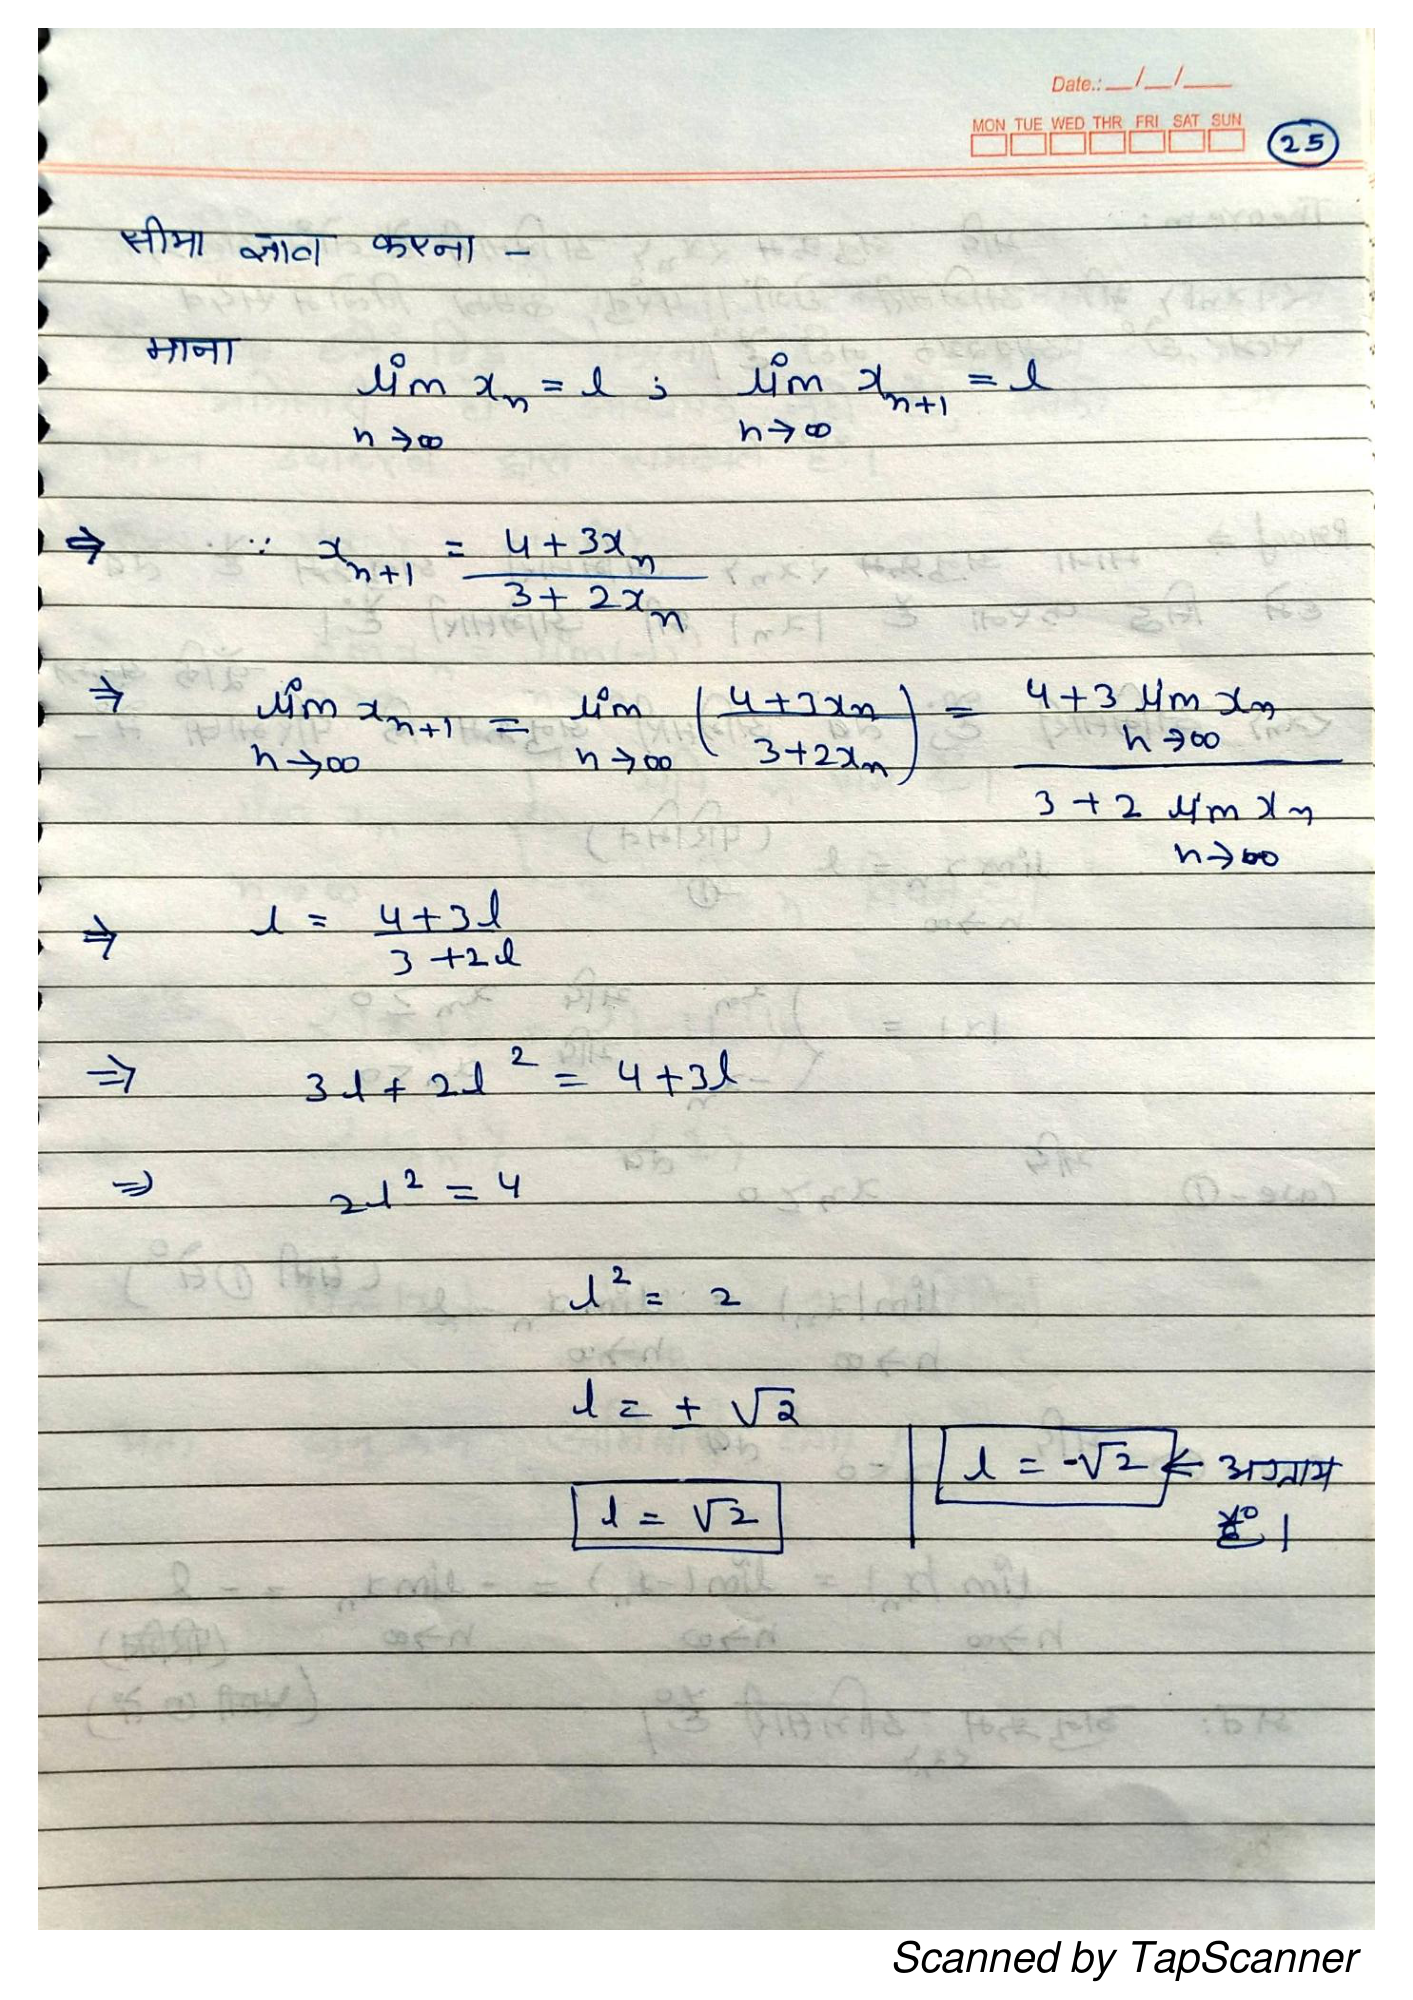 Date.: __/__/___
MON TUE WED THR FRI SAT SUN
25
सीमा ज्ञात करना -
माना
lim xₙ = l ; lim xₙ₊₁ = l
n→∞ n→∞
⇒ ∵ xₙ₊₁ = 4+3xₙ
3+2xₙ
⇒ lim xₙ₊₁ = lim (4+3xₙ / 3+2xₙ) = 4+3 lim xₙ
n→∞ n→∞ n→∞
3+2 lim xₙ
n→∞
⇒ l = 4+3l
3+2l
⇒ 3l + 2l² = 4+3l
⇒ 2l² = 4
l² = 2
l = ± √2
l = √2
l = -√2 ← अमान्य
है।
Scanned by TapScanner